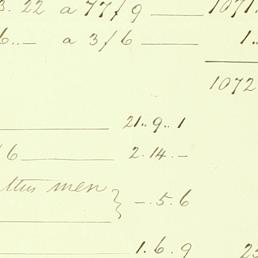 3. 22 a 77/9 — 1071.
6.. — a 3/6 — 1..
1072
— 21..9..1
/6 — 2.14.–
men } –.5.6
— 1.6.9